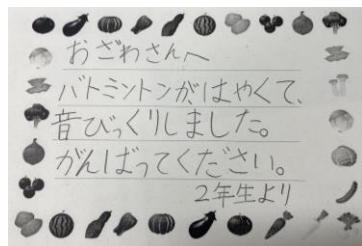 おざわさんへ
バトミントンがはやくて、
音びっくりしました。
がんばってください。
2年生より